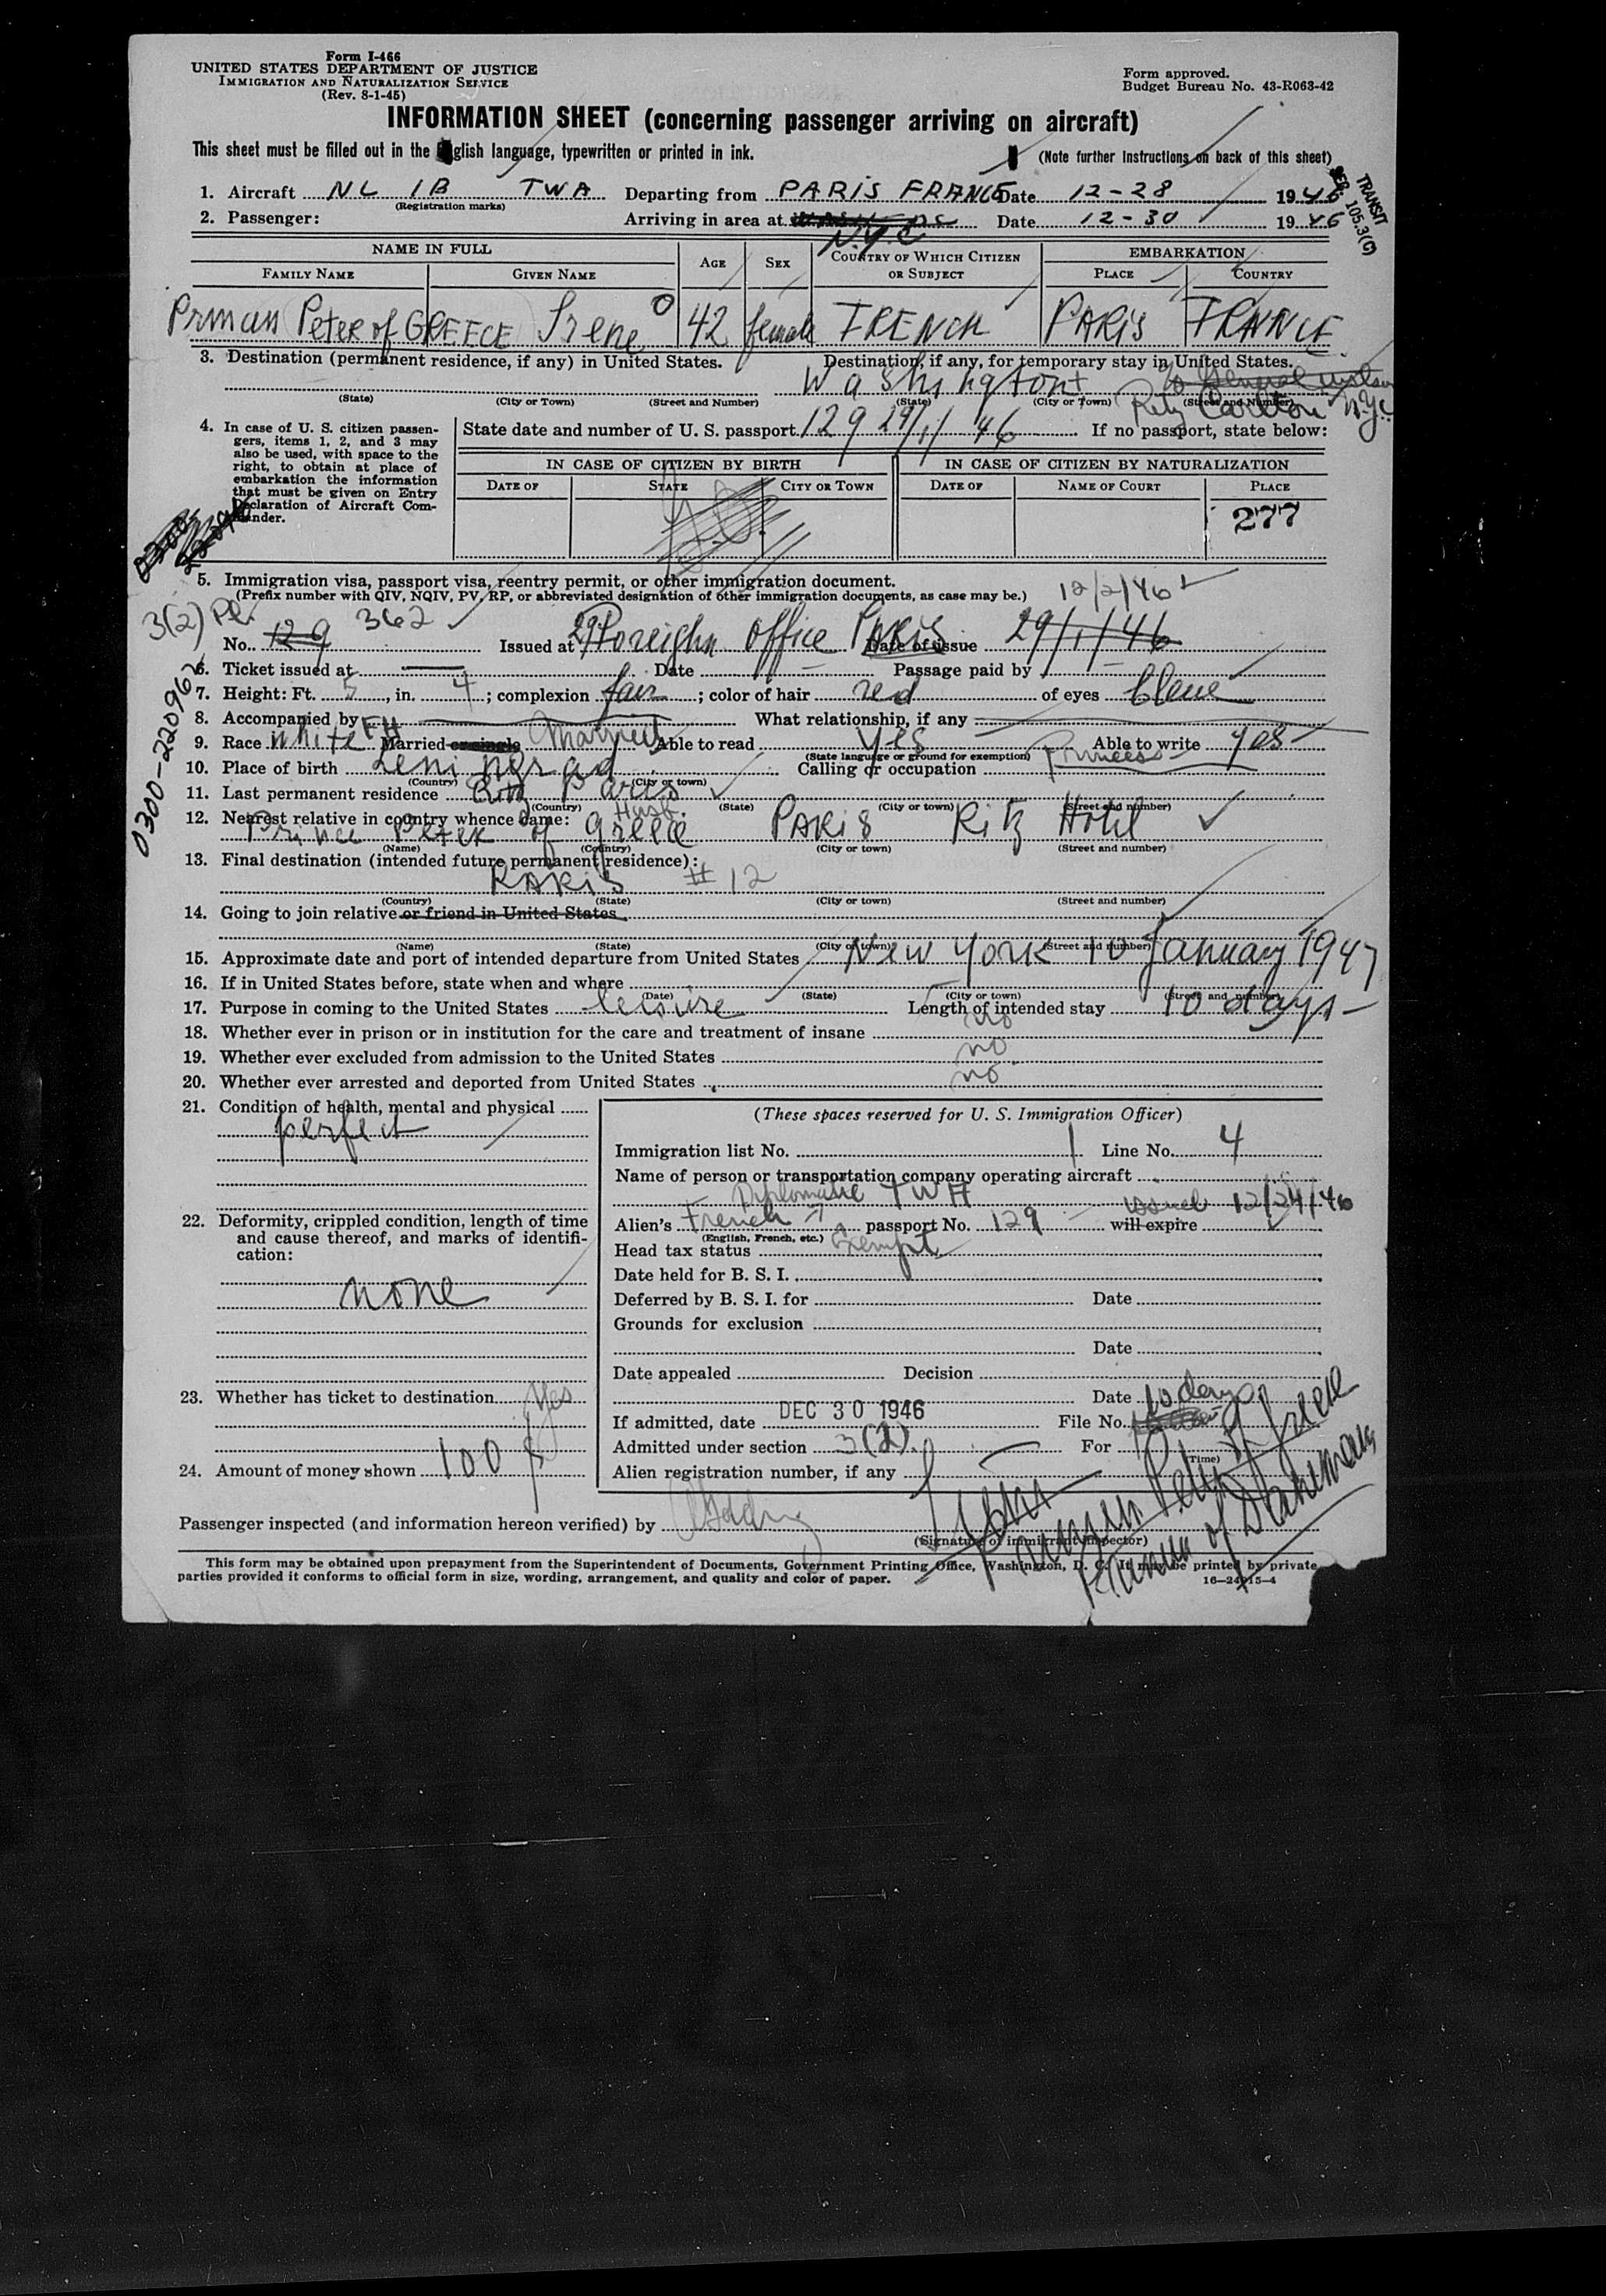 Form I-466
UNITED STATES DEPARTMENT OF JUSTICE
IMMIGRATION AND NATURALIZATION SERVICE
(Rev. 8-1-45)
Form approved.
Budget Bureau No. 43-R063-42
INFORMATION SHEET (concerning passenger arriving on aircraft)
This sheet must be filled out in the English language, typewritten or printed in ink.
(Note further instructions on back of this sheet)
TRANSIT
SEC. 105.3(C)
1. Aircraft NL 1B TWA Departing from PARIS FRANCE Date 12-28 1946
(Registration marks)
2. Passenger: Arriving in area at N.Y.C Date 12-30 1946
NAME IN FULL AGE SEX COUNTRY OF WHICH CITIZEN OR SUBJECT EMBARKATION
FAMILY NAME GIVEN NAME PLACE COUNTRY
Peter of GREECE Irene 42 female FRENCH PARIS FRANCE
3. Destination (permanent residence, if any) in United States. Destination, if any, for temporary stay in United States.
Washington
Ritz Carlton N.Y.C
(State) (City or Town) (Street and Number) (State) (City or Town) (Street and Number)
4. In case of U. S. citizen passengers, items 1, 2, and 3 may also be used, with space to the right, to obtain at place of embarkation the information that must be given on Entry Declaration of Aircraft Commander.
State date and number of U. S. passport 129 29/1/46 If no passport, state below:
IN CASE OF CITIZEN BY BIRTH IN CASE OF CITIZEN BY NATURALIZATION
DATE OF STATE CITY OR TOWN DATE OF NAME OF COURT PLACE
277
0300-220962
5. Immigration visa, passport visa, reentry permit, or other immigration document.
(Prefix number with QIV, NQIV, PV, RP, or abbreviated designation of other immigration documents, as case may be.) 12/2/46
3(2)
No. 129 362 Issued at Foreighn office PARIS Date of issue 29/1/46
6. Ticket issued at Date Passage paid by
7. Height: Ft. 5, in. 4; complexion fair; color of hair red of eyes bleue
8. Accompanied by What relationship, if any
9. Race white Married or single Married Able to read yes Able to write yes
(State language or ground for exemption)
10. Place of birth Leningrad Calling or occupation Princess
(Country) (City or town)
11. Last permanent residence Ritz Paris
(Country) (State) (City or town) (Street and number)
12. Nearest relative in country whence came: Husb.
Prince Peter of Greece PARIS Ritz Hotel
(Name) (Country) (City or town) (Street and number)
13. Final destination (intended future permanent residence):
PARIS #12
(Country) (State) (City or town) (Street and number)
14. Going to join relative or friend in United States
(Name) (State) (City or town) (Street and number)
15. Approximate date and port of intended departure from United States New York 10 January 1947
16. If in United States before, state when and where
(Date) (State) (City or town) (Street and number)
17. Purpose in coming to the United States leisure Length of intended stay 10 days
18. Whether ever in prison or in institution for the care and treatment of insane no
19. Whether ever excluded from admission to the United States no
20. Whether ever arrested and deported from United States no
21. Condition of health, mental and physical
perfect
22. Deformity, crippled condition, length of time and cause thereof, and marks of identification:
none
23. Whether has ticket to destination yes
24. Amount of money shown 100 $
(These spaces reserved for U. S. Immigration Officer)
Immigration list No. 1 Line No. 4
Name of person or transportation company operating aircraft
Diplomatic TWA issued 12/24/46
Alien's French passport No. 129 will expire
(English, French, etc.)
Head tax status Exempt
Date held for B. S. I.
Deferred by B. S. I. for Date
Grounds for exclusion
Date
Date appealed Decision
Date 10 days
If admitted, date DEC 30 1946 File No.
Admitted under section 3(2). For
(Time)
Alien registration number, if any
Passenger inspected (and information hereon verified) by
(Signature of immigrant inspector)
This form may be obtained upon prepayment from the Superintendent of Documents, Government Printing Office, Washington, D. C. It may be printed by private
parties provided it conforms to official form in size, wording, arrangement, and quality and color of paper.
16-24915-4